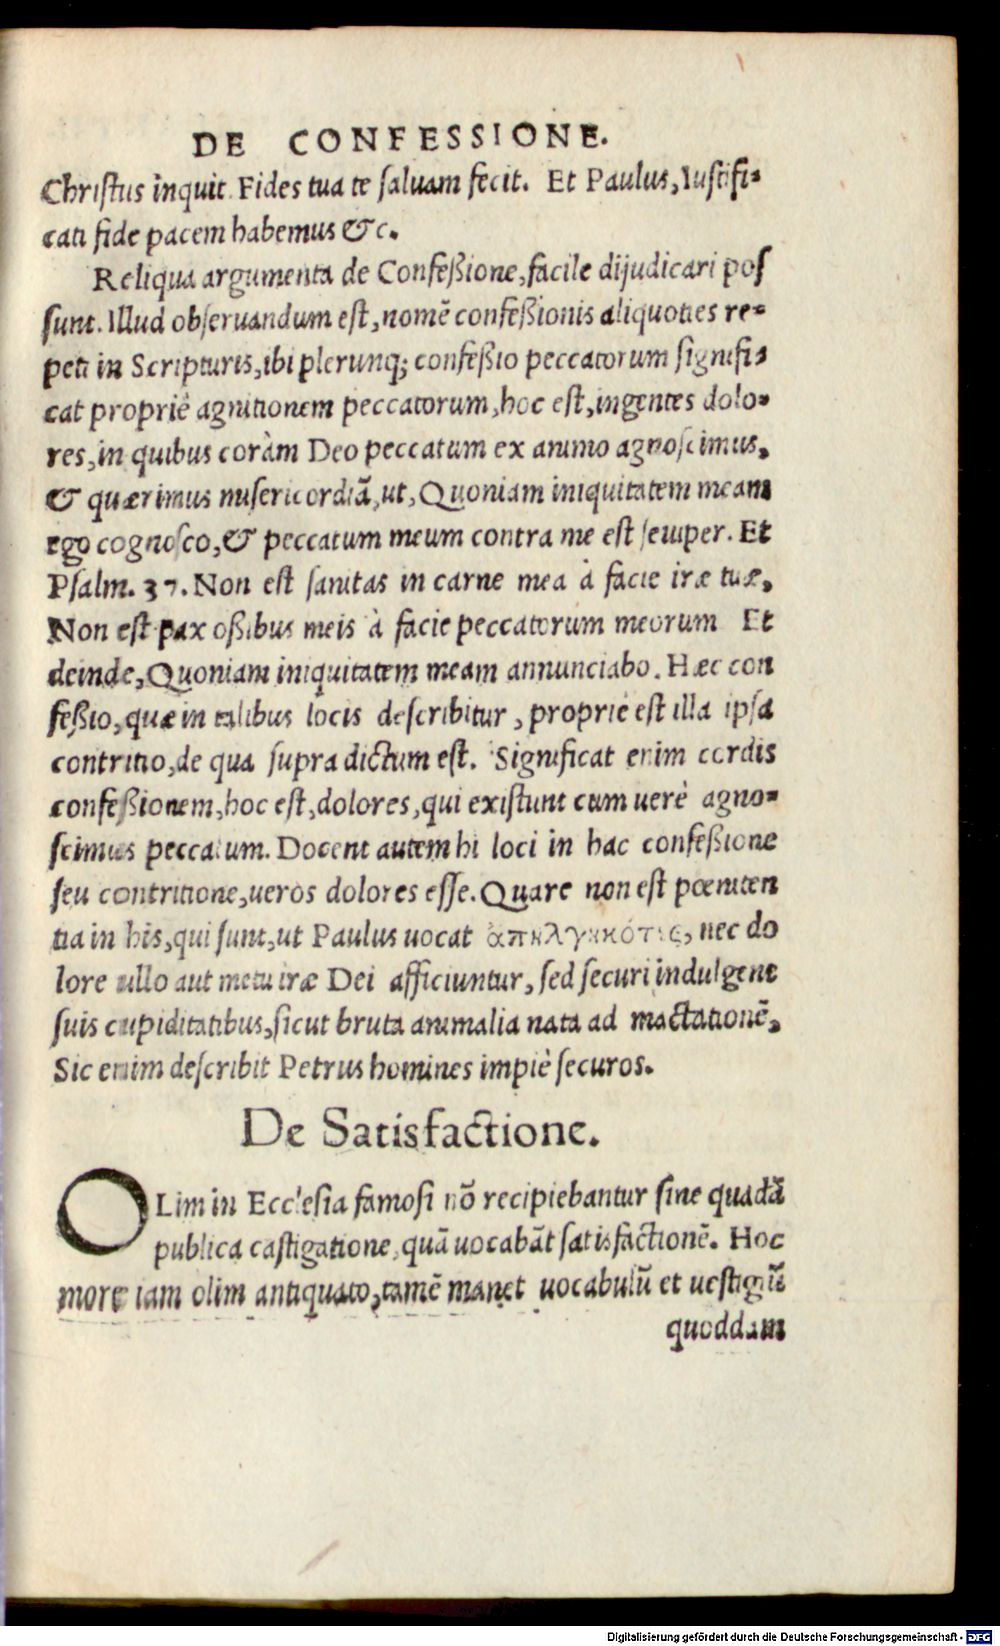 DE CONFESSIONE.
Christus inquit. Fides tua te saluam fecit. Et Paulus, Iustifi-
cati fide pacem habemus & c.
Reliqua argumenta de Confeßione, facile dijudicari pos
sunt. Illud obseruandum est, nomē confeßionis aliquoties re-
peti in Scripturis, ibi plerunq; confeßio peccatorum signifi-
cat propriè agnitionem peccatorum, hoc est, ingentes dolo-
res, in quibus coràm Deo peccatum ex animo agnoscimus,
& quærimus misericordiā, ut, Quoniam iniquitatem meam
ego cognosco, & peccatum meum contra me est semper. Et
Psalm. 37. Non est sanitas in carne mea à facie iræ tuæ,
Non est pax oßibus meis à facie peccatorum meorum Et
deinde, Quoniam iniquitatem meam annunciabo. Hæc con
feßio, quæ in talibus locis describitur, propriè est illa ipsa
contritio, de qua supra dictum est. Significat enim cordis
confeßionem, hoc est, dolores, qui existunt cum uerè agno-
scimus peccatum. Docent autem hi loci in hac confeßione
seu contritione, ueros dolores esse. Quare non est pœniten
tia in his, qui sunt, ut Paulus uocat ἀπηλγηκότες, nec do
lore ullo aut metu iræ Dei afficiuntur, sed securi indulgent
suis cupiditatibus, sicut bruta animalia nata ad mactationē,
Sic enim describit Petrus homines impiè securos.
De Satisfactione.
OLim in Ecclesia famosi nō recipiebantur sine quadā
publica castigatione, quā uocabāt satisfactionē. Hoc
more iam olim antiquato, tamē manet uocabulū et uestigiū
quoddam
Digitalisierung gefördert durch die Deutsche Forschungsgemeinschaft - DFG